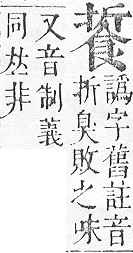 譌字舊註音
折臭敗之味
又音制義
同𠀤非